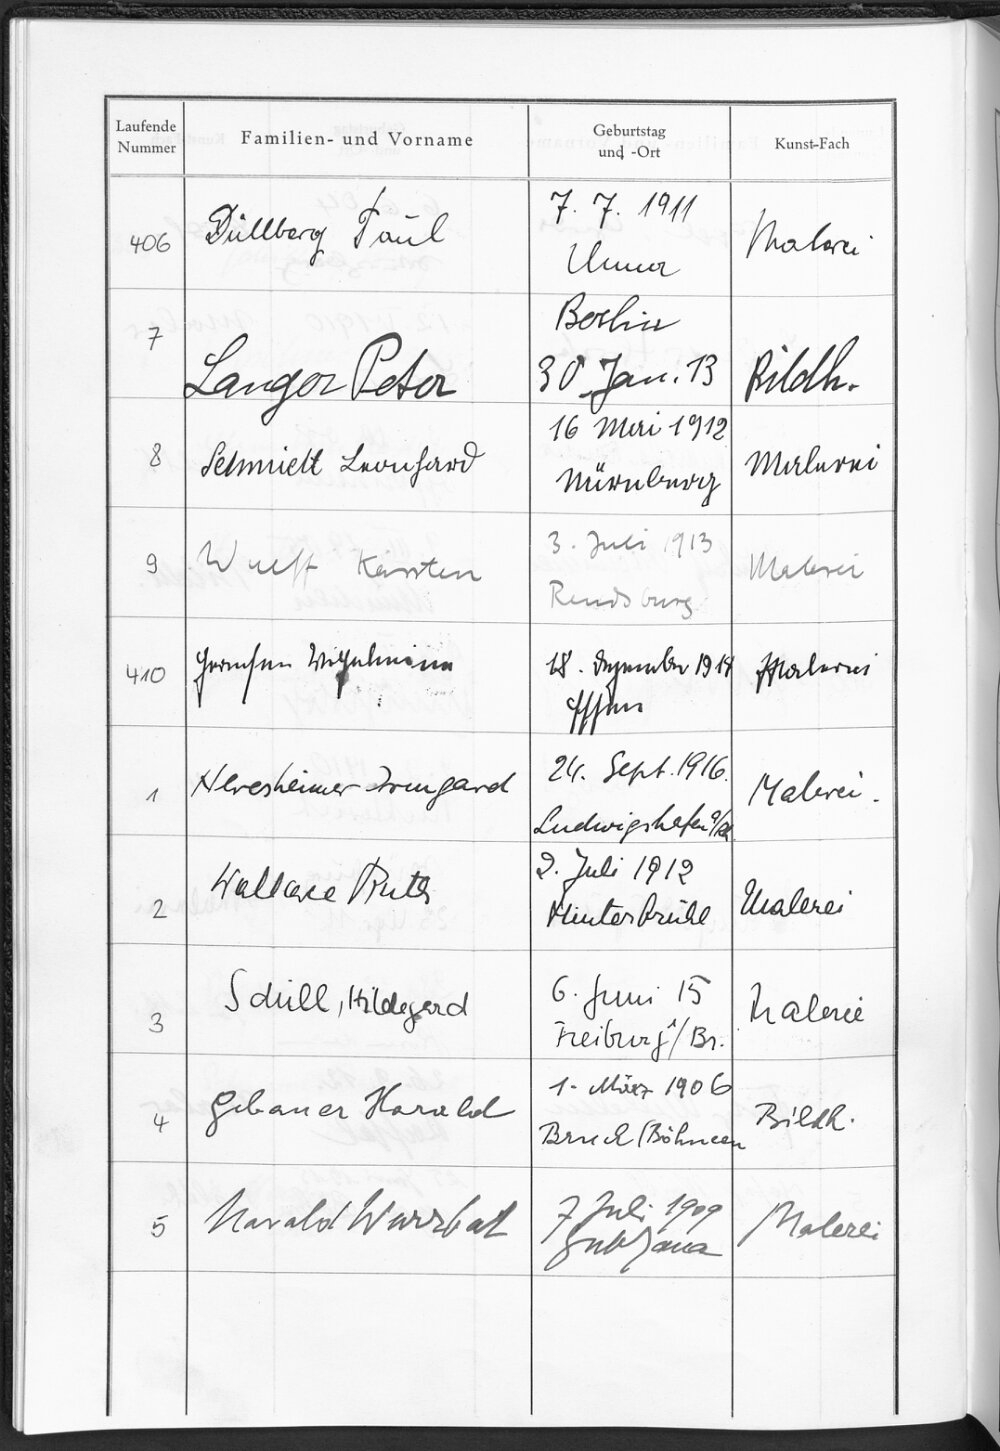 Laufende Nummer
Familien- und Vorname
Geburtstag und -Ort
Kunst-Fach
406 Düllberg Paul 7. 7. 1911 Malerei
Unna
7 Berlin
Langer Peter 30 Jan. 13 Bildh.
16 Mai 1912
8 Schmidt Leonhard Nürnberg Malerei
9 Wulff Karsten 3. Juli 1913 Malerei
Rendsburg
410 Wilhelmine 18. Dezember 1914 Malerei
Essen
1 Neresheimer Irmgard 24. Sept. 1916. Malerei.
Ludwigshafen a/Rh
2 Wallace Ruth 2. Juli 1912 Malerei
Hinterbrühl
3 Schill, Hildegard 6. Juni 15 Malerei
Freiburg i/Br.
4 Gebauer Harald 1. März 1906 Bildh.
Bruch (Böhmen
5 Harald Wurzbat 7 Juli 1909 Malerei
Ljubljana